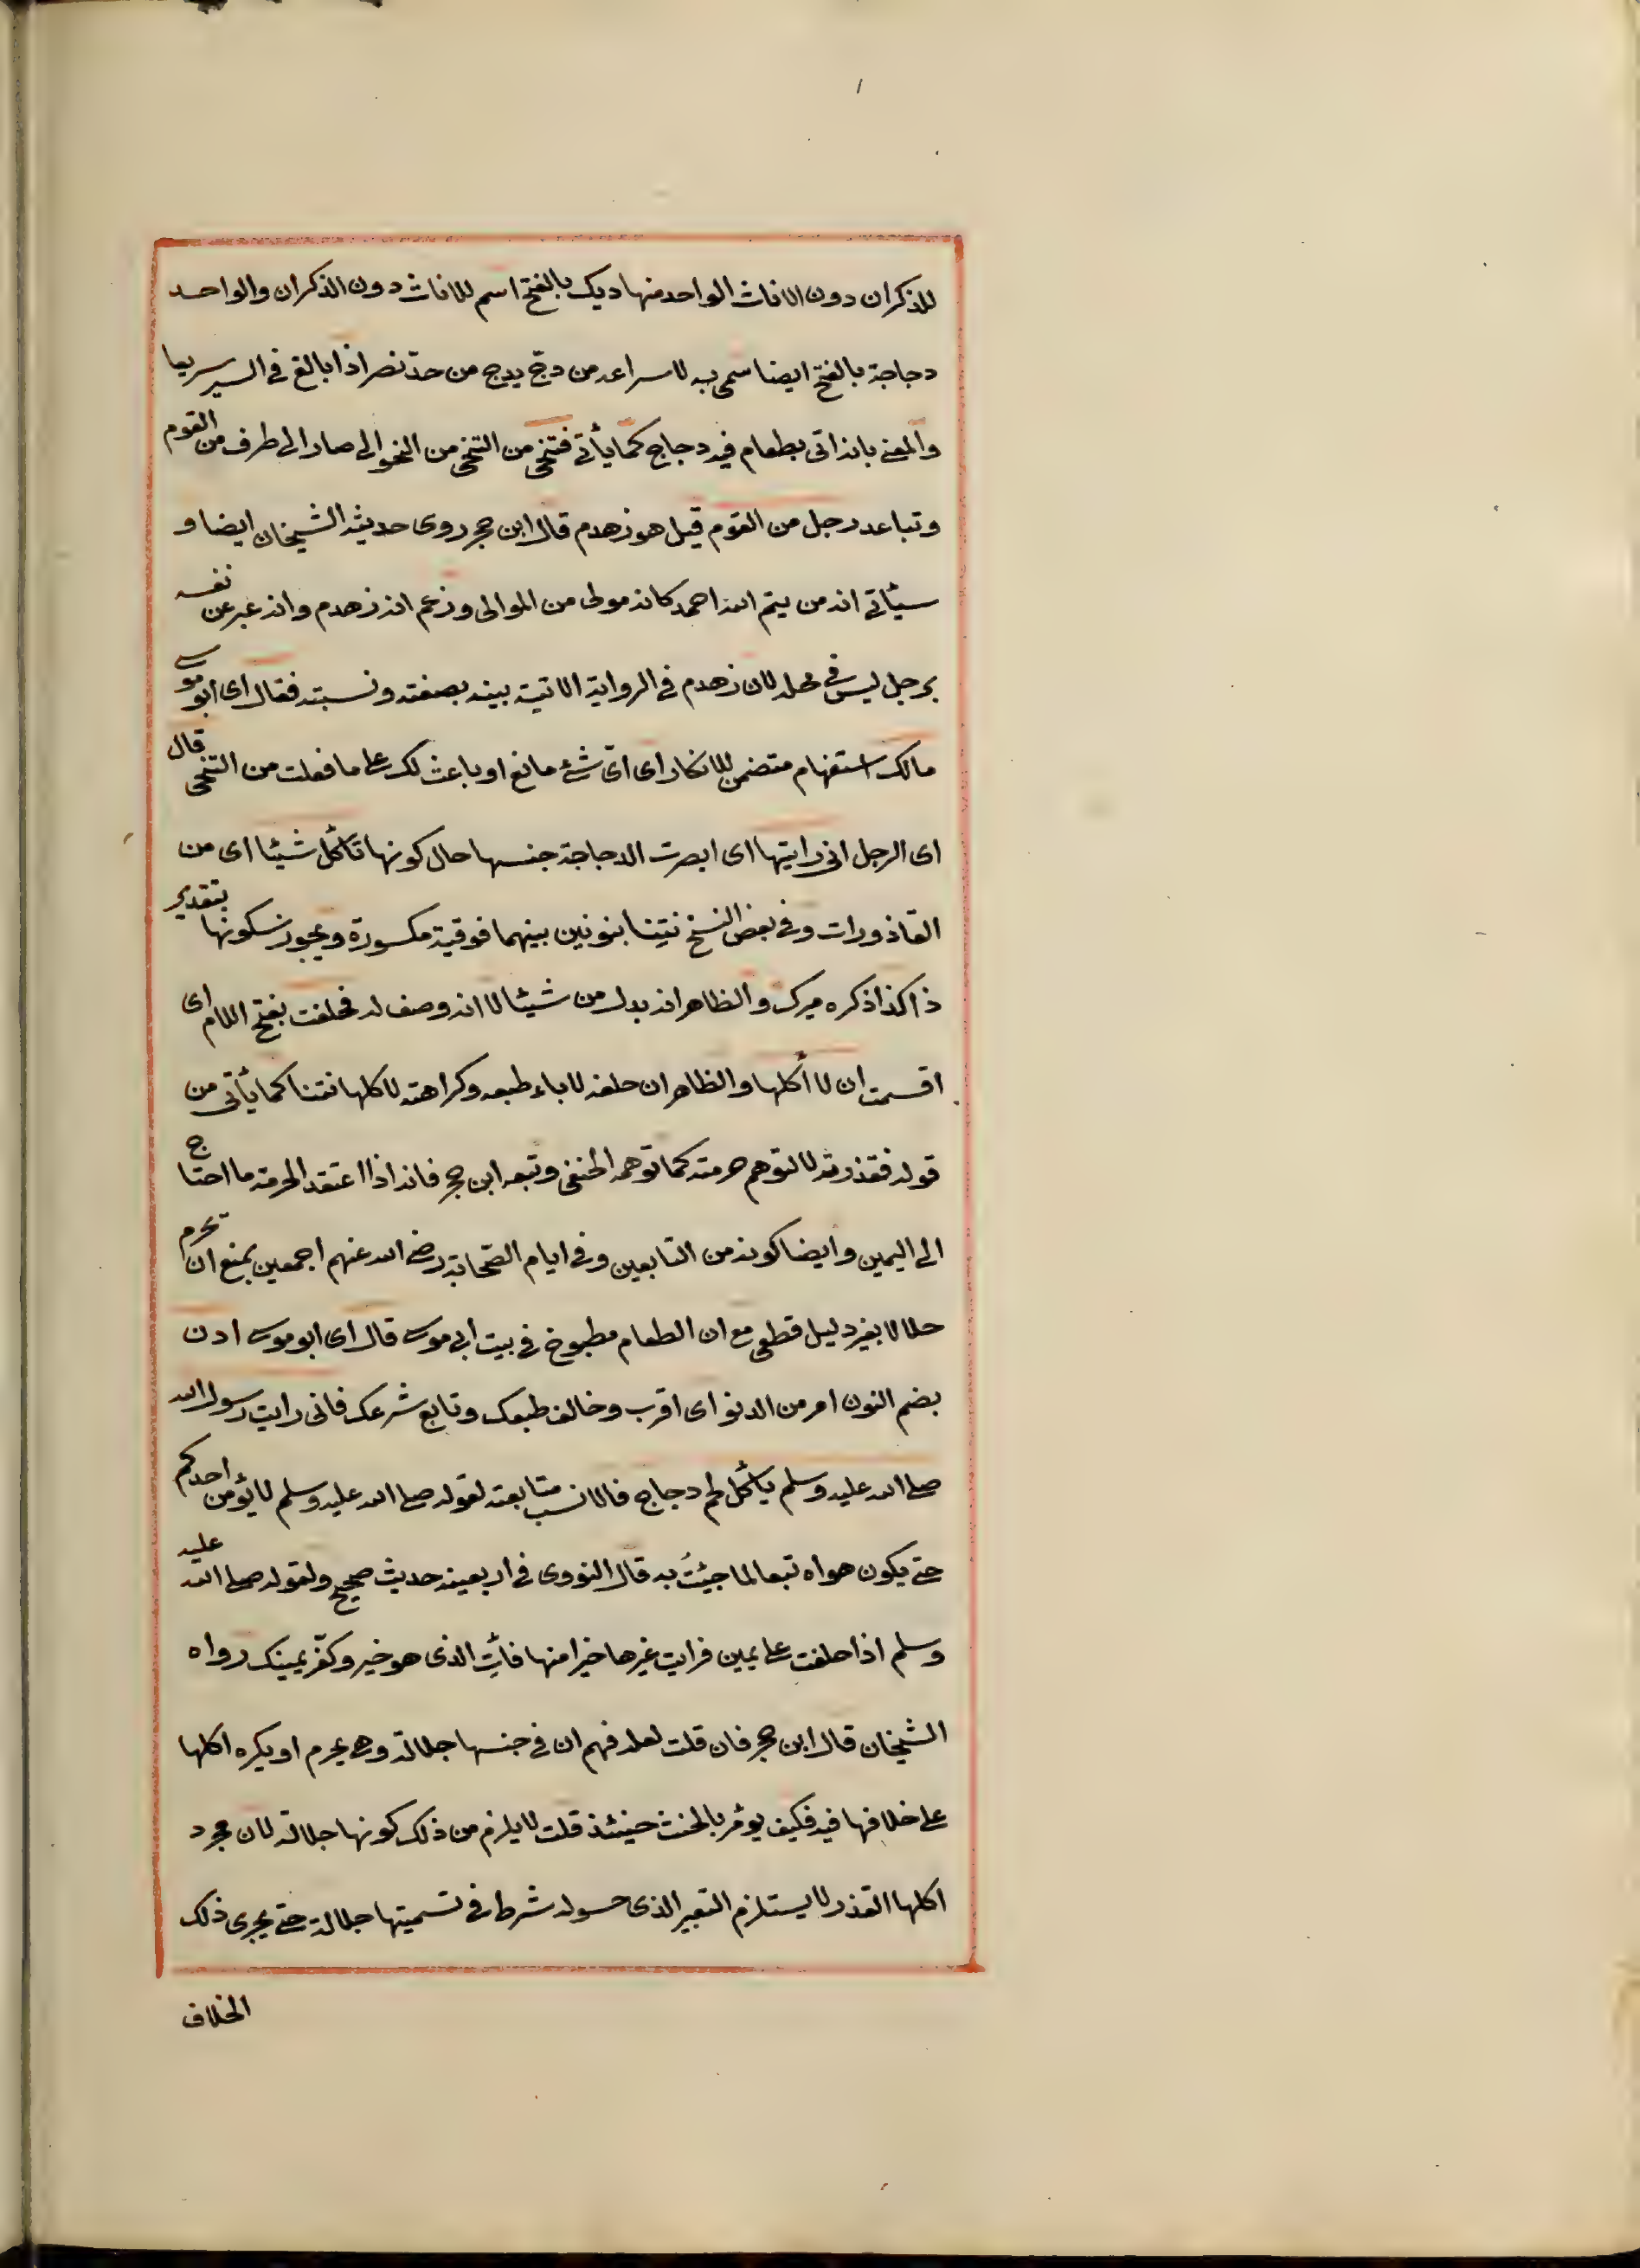 للذكران دون الاناث الواحد منها ديك بالفتح اسم للاناث دون الذكران والواحد
دجاجة بالفتح ايضا سمى به للاسراعه من دجّ يدج من حدّ نصر اذا بالغ فى السير سريعا
والمعنى بانه اتى بطعام فيه دجاج كما يأتى فتنحى من التنحى من النحو الى صار الى طرف من القوم
وتباعد رجل من القوم قيل هو زهدم قال ابن حجر روى حديثه الشيخان ايضا و
سيئاتى انه من يتم الله احمد كانه مولى من الموالى وزعم انه زهدم وانه عبر عن نفسه
برجل ليس فى محله لان زهدم فى الرواية الاتية بينه بصفته ونسبته فقال اى ابو موسى
مالك استفهام متضمن للانكار اى اىّ شئ مانع او باعث لك على ما فعلت من التنحى قال
اى الرجل انى رايتها اى ابصرت الدجاجة جنسها حال كونها تأكل شيئا اى من
القاذورات وفى بعض النسخ نتنا بنونين بينهما فوقية مكسورة ويجوز سكونها بتقدير
ذا كذا ذكره ميرك والظاهر انه بدل من شيئا لا انه وصف له فحلفت بفتح اللام اى
اقسمت ان لا أكلها والظاهر ان حلفه لاباء طبعه وكراهته لاكلها نتنا كما يأتى من
قوله فقذرته لا لتوهم حرمته كما توهمه الحنفى وتبعه ابن حجر فانه اذا اعتقد الحرمة ما احتاج
الى اليمين وايضا كونه من التابعين وفى ايام الصّحابة رضى الله عنهم اجمعين يمنع ان يحرم
حلالا بغير دليل قطعى مع ان الطعام مطبوخ فى بيت ابى موسى قال اى ابو موسى ادن
بضم النون امر من الدنو اى اقرب وخالف طبعك وتابع شرعك فانى رايت رسول الله
صلى الله عليه وسلم يأكل لحم دجاج فالانسب متابعته لقوله صلى الله عليه وسلم لا يؤمن احدكم
حتى يكون هواه تبعا لما جيئت به قال النووى فى اربعينه حديث صحيح ولقوله صلى الله عليه
وسلم اذا حلفت على يمين فرايت غيرها خيرا منها فأت الذى هو خير وكفّر يمينك رواه
الشيخان قال ابن حجر فان قلت لعله فهم ان فى جنسها جلالة وهى يحرم او يكره اكلها
على خلافها فيه فكيف يؤمر بالحنث حينئذ قلت لا يلزم من ذلك كونها جلالة لان مجرد
اكلها القذر لا يستلزم التغير الذى حسوله شرط فى تسميتها جلالة حتى يجرى ذلك
الخلاف